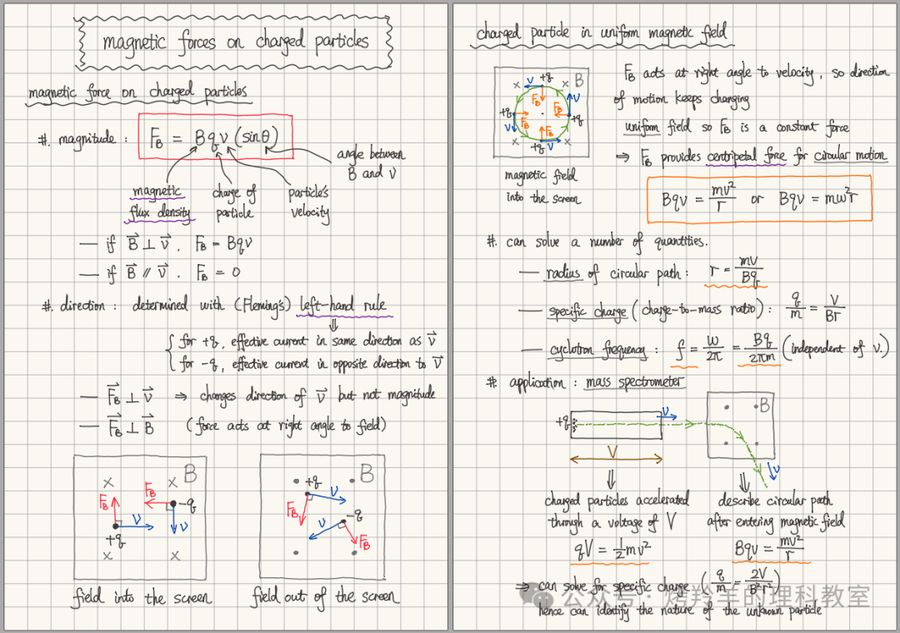 magnetic forces on charged particles
magnetic force on charged particles
#. magnitude : F_B = Bqv (sinθ)
angle between
B and v
magnetic
flux density
charge of
particle
particle's
velocity
— if B⃗ ⊥ v⃗ . F_B = Bqv
— if B⃗ ∥ v⃗ . F_B = 0
#. direction : determined with (Fleming's) left-hand rule
⇓
{ for +q, effective current in same direction as v⃗
for -q, effective current in opposite direction to v⃗
— F⃗_B ⊥ v⃗ ⇒ changes direction of v⃗ but not magnitude
— F⃗_B ⊥ B⃗ (force acts at right angle to field)
× × B
F_B v +q
F_B -q v
× ×
field into the screen
B
+q v F_B
-q v F_B
field out of the screen
charged particle in uniform magnetic field
× × B
v +q F_B
+q F_B v
v F_B +q
F_B +q v
× ×
magnetic field
into the screen
F_B acts at right angle to velocity, so direction
of motion keeps changing
uniform field so F_B is a constant force
⇒ F_B provides centripetal force for circular motion
Bqv = mv²/r or Bqv = mω²r
#. can solve a number of quantities.
— radius of circular path : r = mv/Bq
— specific charge (charge-to-mass ratio) : q/m = v/Br
— cyclotron frequency : f = ω/2π = Bq/2πm (independent of v)
#. application : mass spectrometer
+q v B
V v
⇓ ⇓
charged particles accelerated
through a voltage of V
qV = ½mv²
describe circular path
after entering magnetic field
Bqv = mv²/r
⇒ can solve for specific charge ( q/m = 2V/B²r² )
hence can identify the nature of the unknown particle
公众号 · 烤羚羊的理科教室